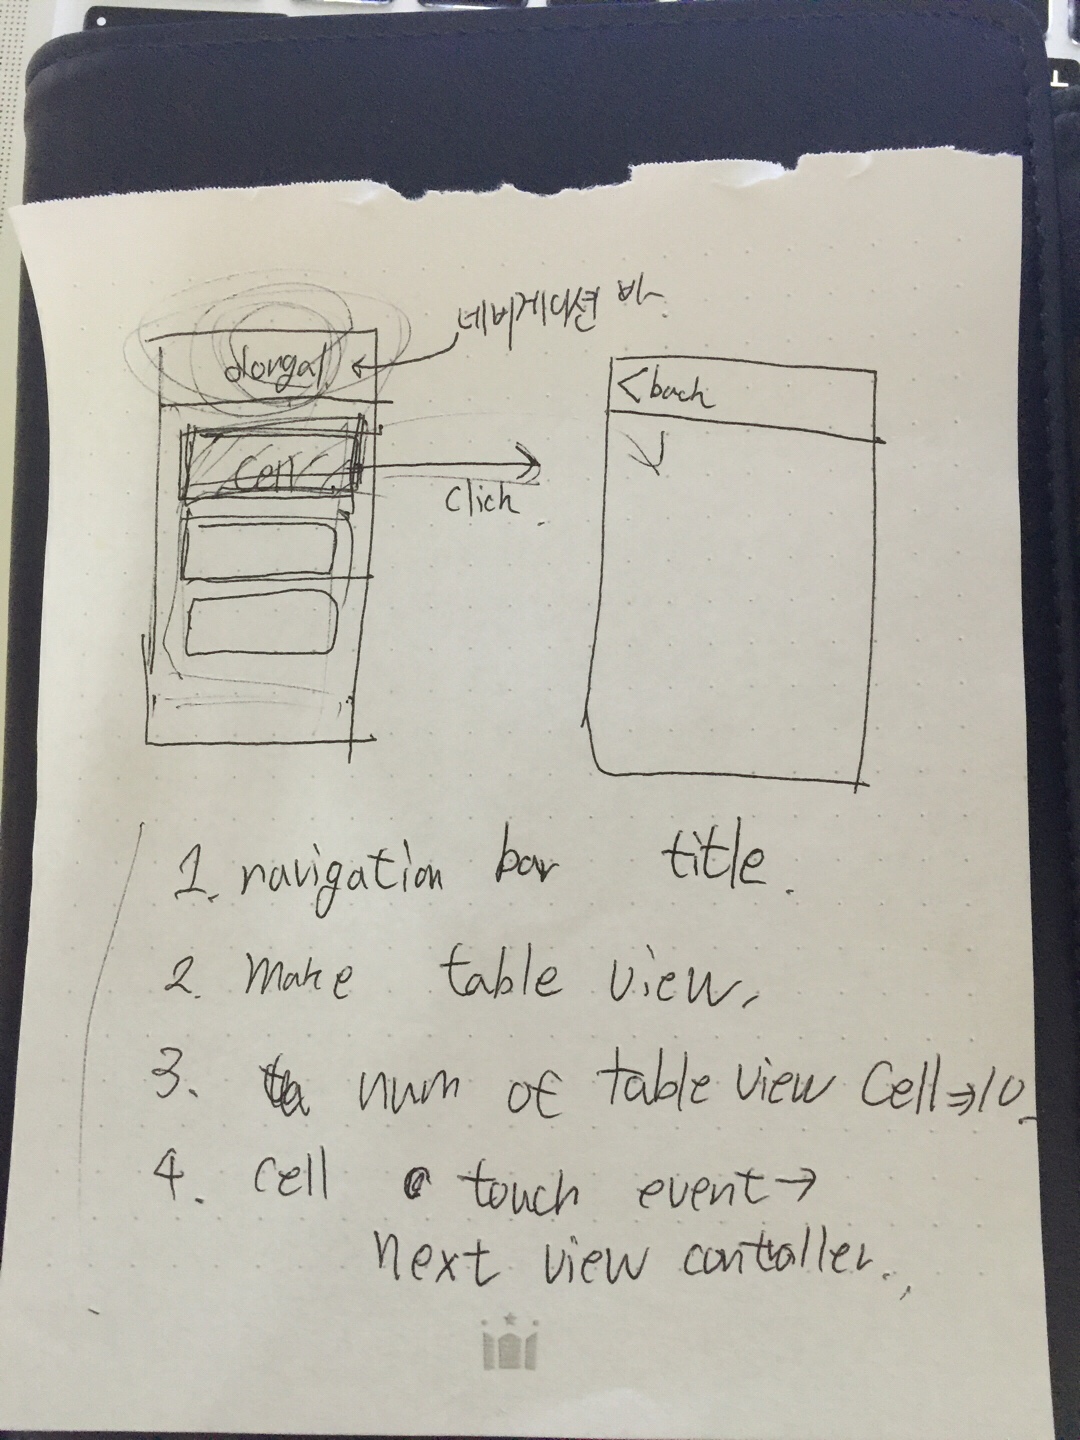 네비게이션 바
dongal
<back
Cell
Click.
1. navigation bar title.
2. Make table view,
3. num of table view Cell ⇒ 10.
4. cell touch event →
next view conttoller.,